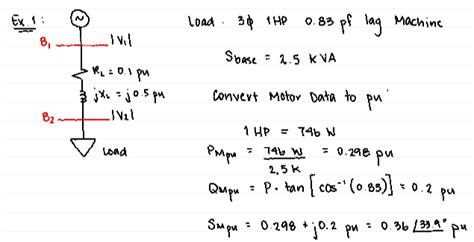 Ex 1:
B₁ |V₁|
R_L = 0.1 pu
jX_L = j0.5 pu
B₂ |V₂|
Load
Load . 3ϕ 1HP 0.83 pf lag Machine
Sbase = 2.5 kVA
Convert Motor Data to pu
1 HP = 746 W
P_Mpu = 746 W / 2.5 K = 0.298 pu
Q_Mpu = P · tan [cos⁻¹(0.83)] = 0.2 pu
S_Mpu = 0.298 + j0.2 pu = 0.36 ∠33.9° pu